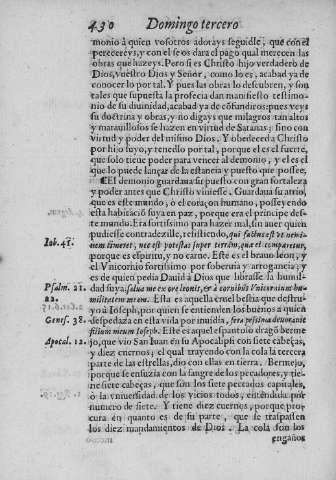 430 Domingo tercero
monio à quien vosotros adorays seguidle, que con el
perecereys, y con el se os dara el pago qual merecen las
obras que hazeys. Pero si es Christo hijo verdadero de
Dios, vuestro Dios y Señor, como lo es, acabad ya de
conocer lo por tal. Y pues las obras lo descubren, y son
tales que supuesta la profecia dan manifiesto testimo-
nio de su diuinidad, acabad ya de cõfundiros: pues veys
su doctrina y obras, y no digays que milagros tan altos
y marauillosos se hazen en virtud de Satanas; sino con
virtud y poder del mismo Dios. Y obedeced a Christo
por hijo suyo, y tenedlo por tal, porque el es el fuerte,
que solo tiene poder para vencer al demonio, y el es el
que lo puede lançar de la estancia y puesto que possee.
¶ El demonio guardaua su puesto con gran fortaleza
y poder antes que Christo viniesse. Guardaua su atrio,
que es este mundo, ò el coraçon humano, posseyendo
esta habitaciõ suya en paz, porque era el principe des-
te mundo. Era fortissimo para hazer mal, sin auer quien
pudiesse contradezille, resistiendo, qui factus est vt nemi-
Iob. 41. nem timeret, nec est potestas super terram, quæ ei comparetur,
porque es espiritu, y no carne. Este es el brauo leon, y
el Vnicornio fortissimo por soberuia y arrogancia; y
es de quien pedia Dauid à Dios que librasse la humil-
Psalm. 21. dad suya: salua me ex ore leonis, & à cornibus Vnicornium hu-
22. militatem meam. Esta es aquella cruel bestia que destru-
yò à Ioseph, por quien se entienden los buenos à quien
Genes. 38. despedaza en esta vida por inuidia, fera pessima deuorauit
filium meum Ioseph. Este es aquel espantoso dragõ berme-
Apocal. 12. jo, que vio San Iuan en su Apocalipsi con siete cabeças,
y diez cuernos; el qual trayendo con la cola la tercera
parte de las estrellas, dio con ellas en tierra. Bermejo,
porque se ensuzia con la sangre de los pecadores, y tie-
ne siete cabeças, que son los siete pecados capitales,
ò la vniuersidad de los vicios todos, entendida por
numero de siete. Y tiene diez cuernos, porque pro-
cura en quanto es de su parte, que se traspassen
los diez mandamientos de Dios. La cola son los
engaños